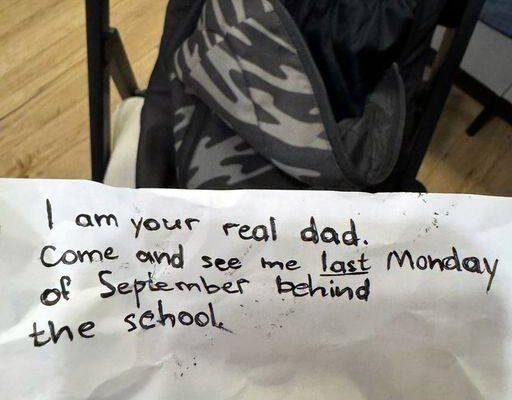 I am your real dad.
Come and see me last Monday
of September behind
the school.